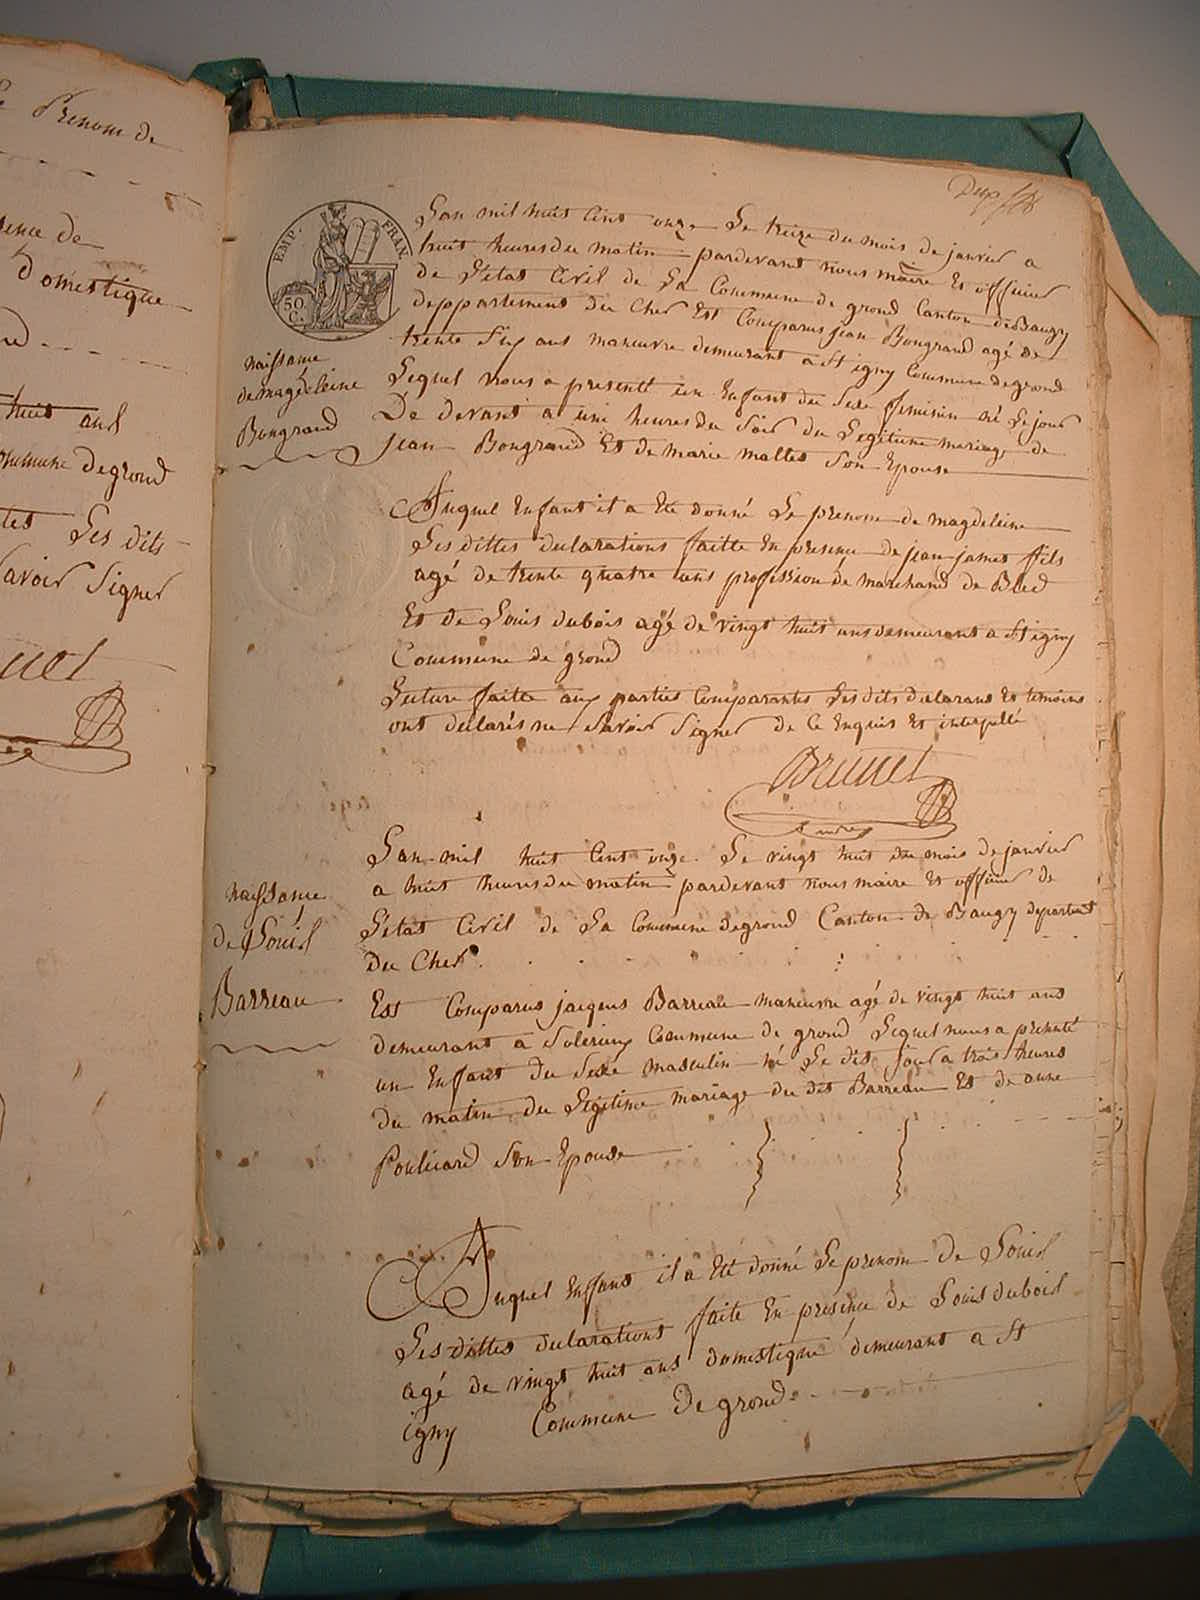 Prenom de
domestique
huit ans
commune de grond
Les dits
Savoir Signer
EMP. FRAN.
50 C.
naissance
de magdeleine
Bongrand
Lan mil huit cent onze Le treize du mois de janvier a
huit heures du matin pardevant nous maire Et officier
de Létat Civil de La Commune de grond Canton de Baugy
deppartement du Cher Est Comparus jean Bongrand agé de
trente Six ans manuvre demeurant a St igny Commune de grond
Lequel nous a presenté un Enfant du Sexe feminin né Le jour
De devant a une heures du Soir du Legitime mariage de
jean Bongrand Et de marie maltes Son Epouse
Auquel Enfant il a Eté donné Le prenom de magdeleine
Les dittes declarations faitte En presence de jean james fils
agé de trente quatre ans profession de marchand de Bled
Et de Louis dubois agé de vingt huit ans demeurant a St igny
Commune de grond
Lecture faitte aux parties Comparantes Les dits declarans Et temoins
ont declarés ne Savoir Signer de Ce Enquis Et interpellé
Brunet
naissance
de Louis
Barreau
Lan mil huit Cent onze Le vingt huit du mois de janvier
a huit heures du matin pardevant nous maire Et officier de
Létat Civil de La Commune de grond Canton de Baugy departement
du Cher
Est Comparus jacques Barreau manuvre agé de vingt huit ans
demeurant a Solerieux Commune de grond Lequel nous a presenté
un Enfant du Sexe masculin né Le dit jour a trois heures
du matin du Legitime mariage du dit Barreau Et de anne
Poulicard Son Epouse
Auquel Enfant il a Eté donné Le prenom de Louis
Les dittes declarations faite En presence de Louis dubois
agé de vingt huit ans domestique demeurant a St
igny Commune De grond